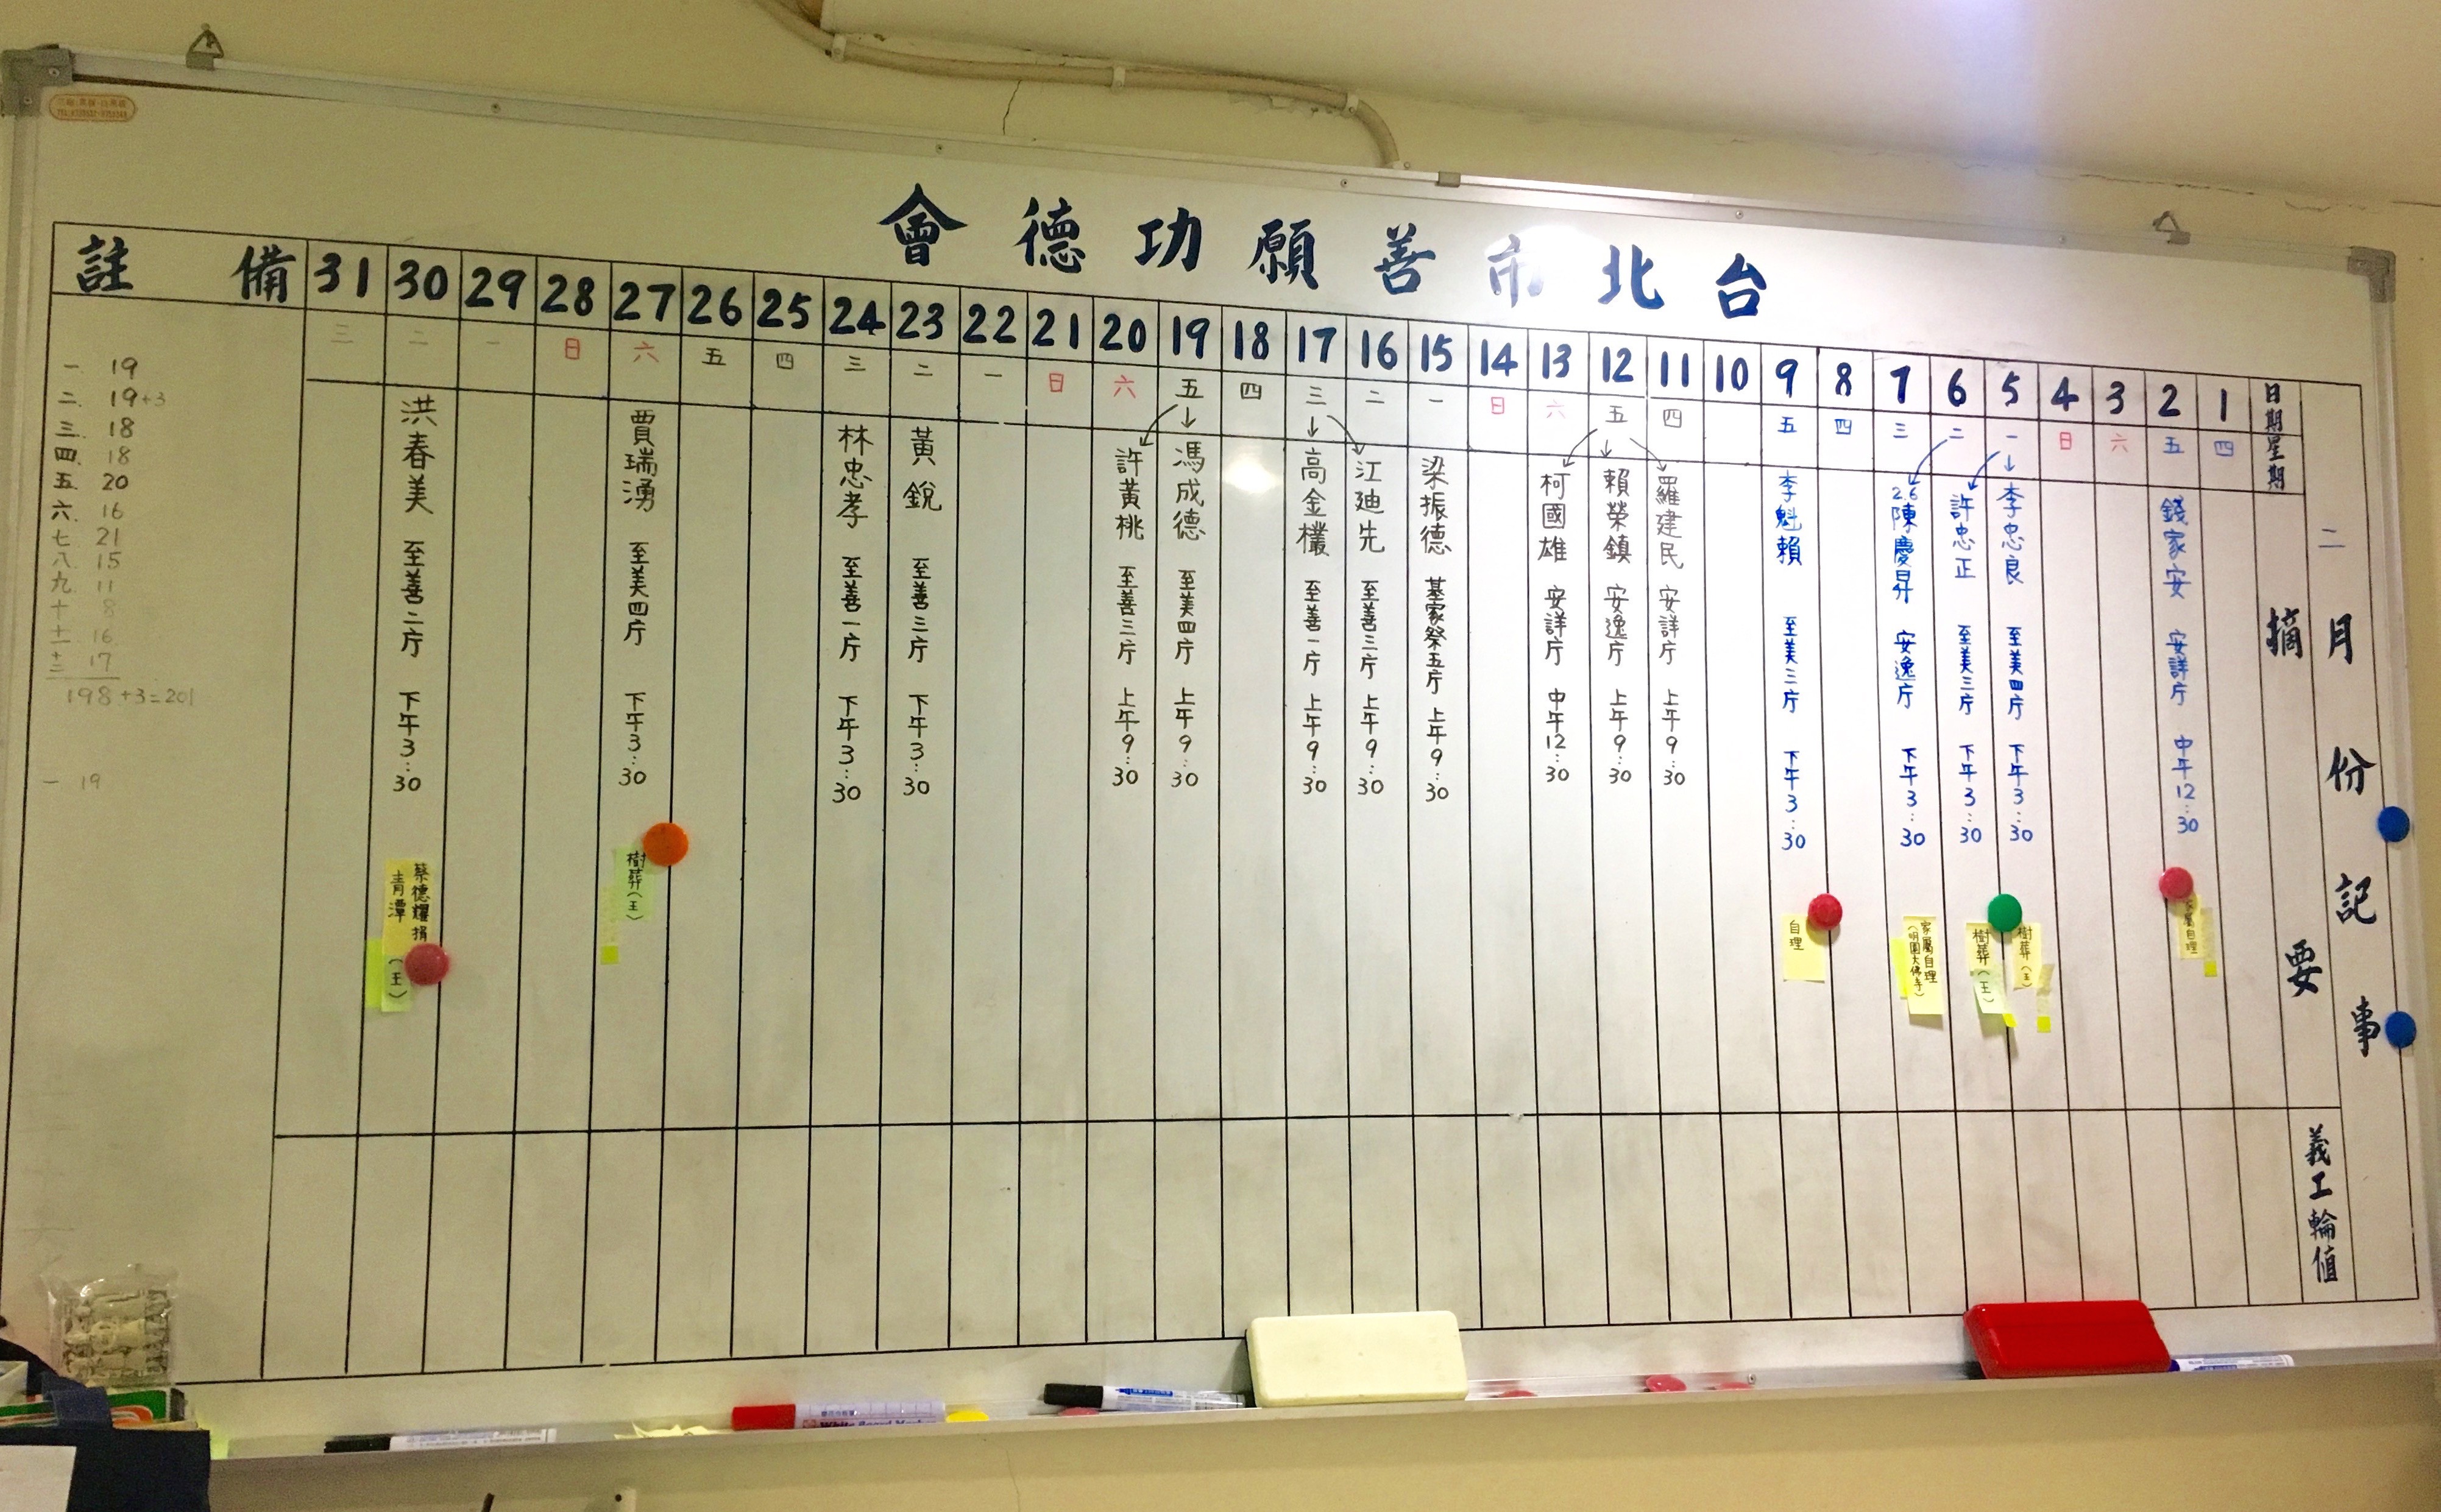 台北市善願功德會
二月份記事
日期
星期
摘要
義工輪值
1
四
2
五
錢家安 安詳庁 中午12:30
家屬自理
3
六
4
日
5
一
李忠良 至美四庁 下午3:30
樹葬(王)
6
二
許忠正 至美三庁 下午3:30
樹葬(王)
7
三
2.6
陳慶昇 安逸庁 下午3:30
家屬自理
8
四
9
五
李魁賴 至美三庁 下午3:30
自理
10
11
四
羅建民 安詳庁 上午9:30
12
五
賴榮鎮 安逸庁 上午9:30
13
六
柯國雄 安詳庁 中午12:30
14
日
15
一
梁振德 基家祭五庁 上午9:30
16
二
江廸先 至善三庁 上午9:30
17
三
高金欉 至善一庁 上午9:30
18
四
19
五
馮成德 至美四庁 上午9:30
20
六
許黃桃 至善三庁 上午9:30
21
日
22
一
23
二
黃銳 至善三庁 下午3:30
24
三
林忠孝 至善一庁 下午3:30
25
四
26
五
27
六
賈瑞湧 至美四庁 下午3:30
樹葬(王)
28
日
29
一
30
二
洪春美 至善二庁 下午3:30
蔡德耀捐
青潭
(王)
31
三
備註
一 19
二. 19+3
三. 18
四. 18
五. 20
六. 16
七 21
八 15
九 11
十 8
十一 16
十二 17
198+3=201
一 19